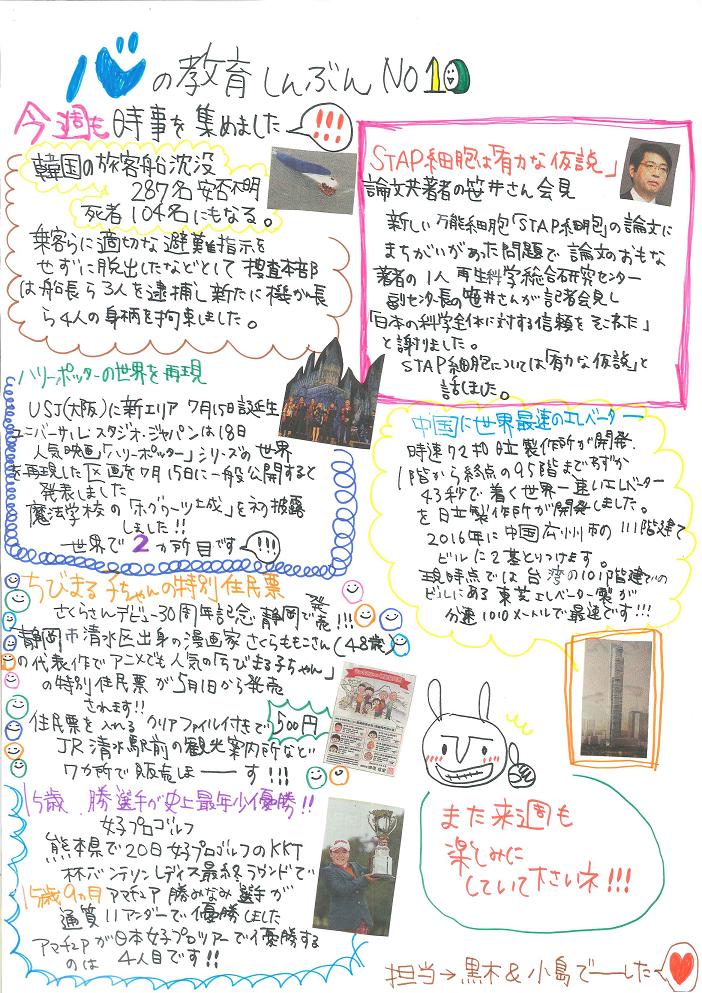 心の教育しんぶん No10
今週も時事を集めました !!!
韓国の旅客船沈没
287名 安否不明
死者104名にもなる。
乗客らに適切な避難指示を
せずに脱出したなどとして捜査本部
は船長ら3人を逮捕し新たに機かん長
ら4人の身柄を拘束しました。
STAP細胞は「有力な仮説」
論文共著者の笹井さん会見
新しい万能細胞「STAP細胞」の論文に
まちがいがあった問題で論文のおもな
著者の1人 再生科学総合研究センター
副センター長の笹井さんが記者会見し
「日本の科学全体に対する信頼をそこねた」
と謝りました。
STAP細胞については「有力な仮説」と
話しました。
ハリーポッターの世界を再現
USJ(大阪)に新エリア 7月15日誕生
ユニバーサル・スタジオ・ジャパンは18日
人気映画「ハリーポッター」シリーズの世界
を再現した区画を7月15日に一般公開すると
発表しました
魔法学校の「ホグワーツ城」をネタ披露
しました!!
世界で2ヵ所目です !!!
中国に世界最速のエレベーター
時速72キロ 日立製作所が開発
1階から終点の95階までわずか
43秒で着く世界一速いエレベーター
を日立製作所が開発しました。
2016年に中国広州市の111階建て
ビルに2基とりつけます。
現時点では台湾の101階建ての
ビルにある東芝エレベーター製が
分速1010メートルで最速です!!!
ちびまる子ちゃんの特別住民票
さくらさんデビュー30周年記念 静岡で発売!!!
静岡市清水区出身の漫画家さくらももこさん(48歳)
の代表作でアニメでも人気の「ちびまる子ちゃん」
の特別住民票が5月1日から発売
されます!!
住民票を入れるクリアファイル付きで500円
JR清水駅前の観光案内所など
7カ所で販売しまーーす!!!
15歳 勝選手が史上最年少優勝!!
女子プロゴルフ
熊本県で20日女子プロゴルフのKKT
杯バンテリンレディス最終ラウンドで
15歳9ヵ月アマチュア勝みなみ選手が
通算11アンダーで優勝しました
アマチュアが日本女子プロツアーで優勝する
のは4人目です!!
また来週も
楽しみに
していて下さいネ!!!
担当→黒木&小島でーした